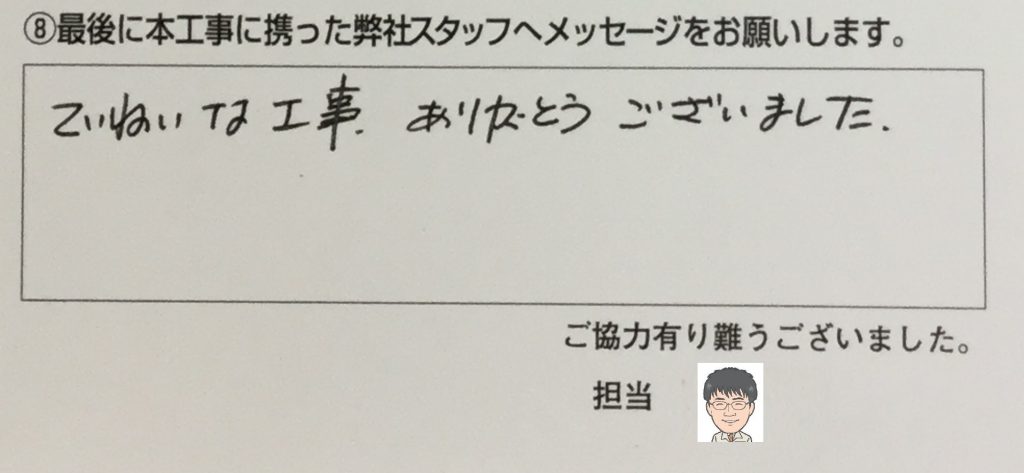 ⑧最後に本工事に携った弊社スタッフへメッセージをお願いします。
ていねいな工事、ありがとうございました。
ご協力有り難うございました。
担当